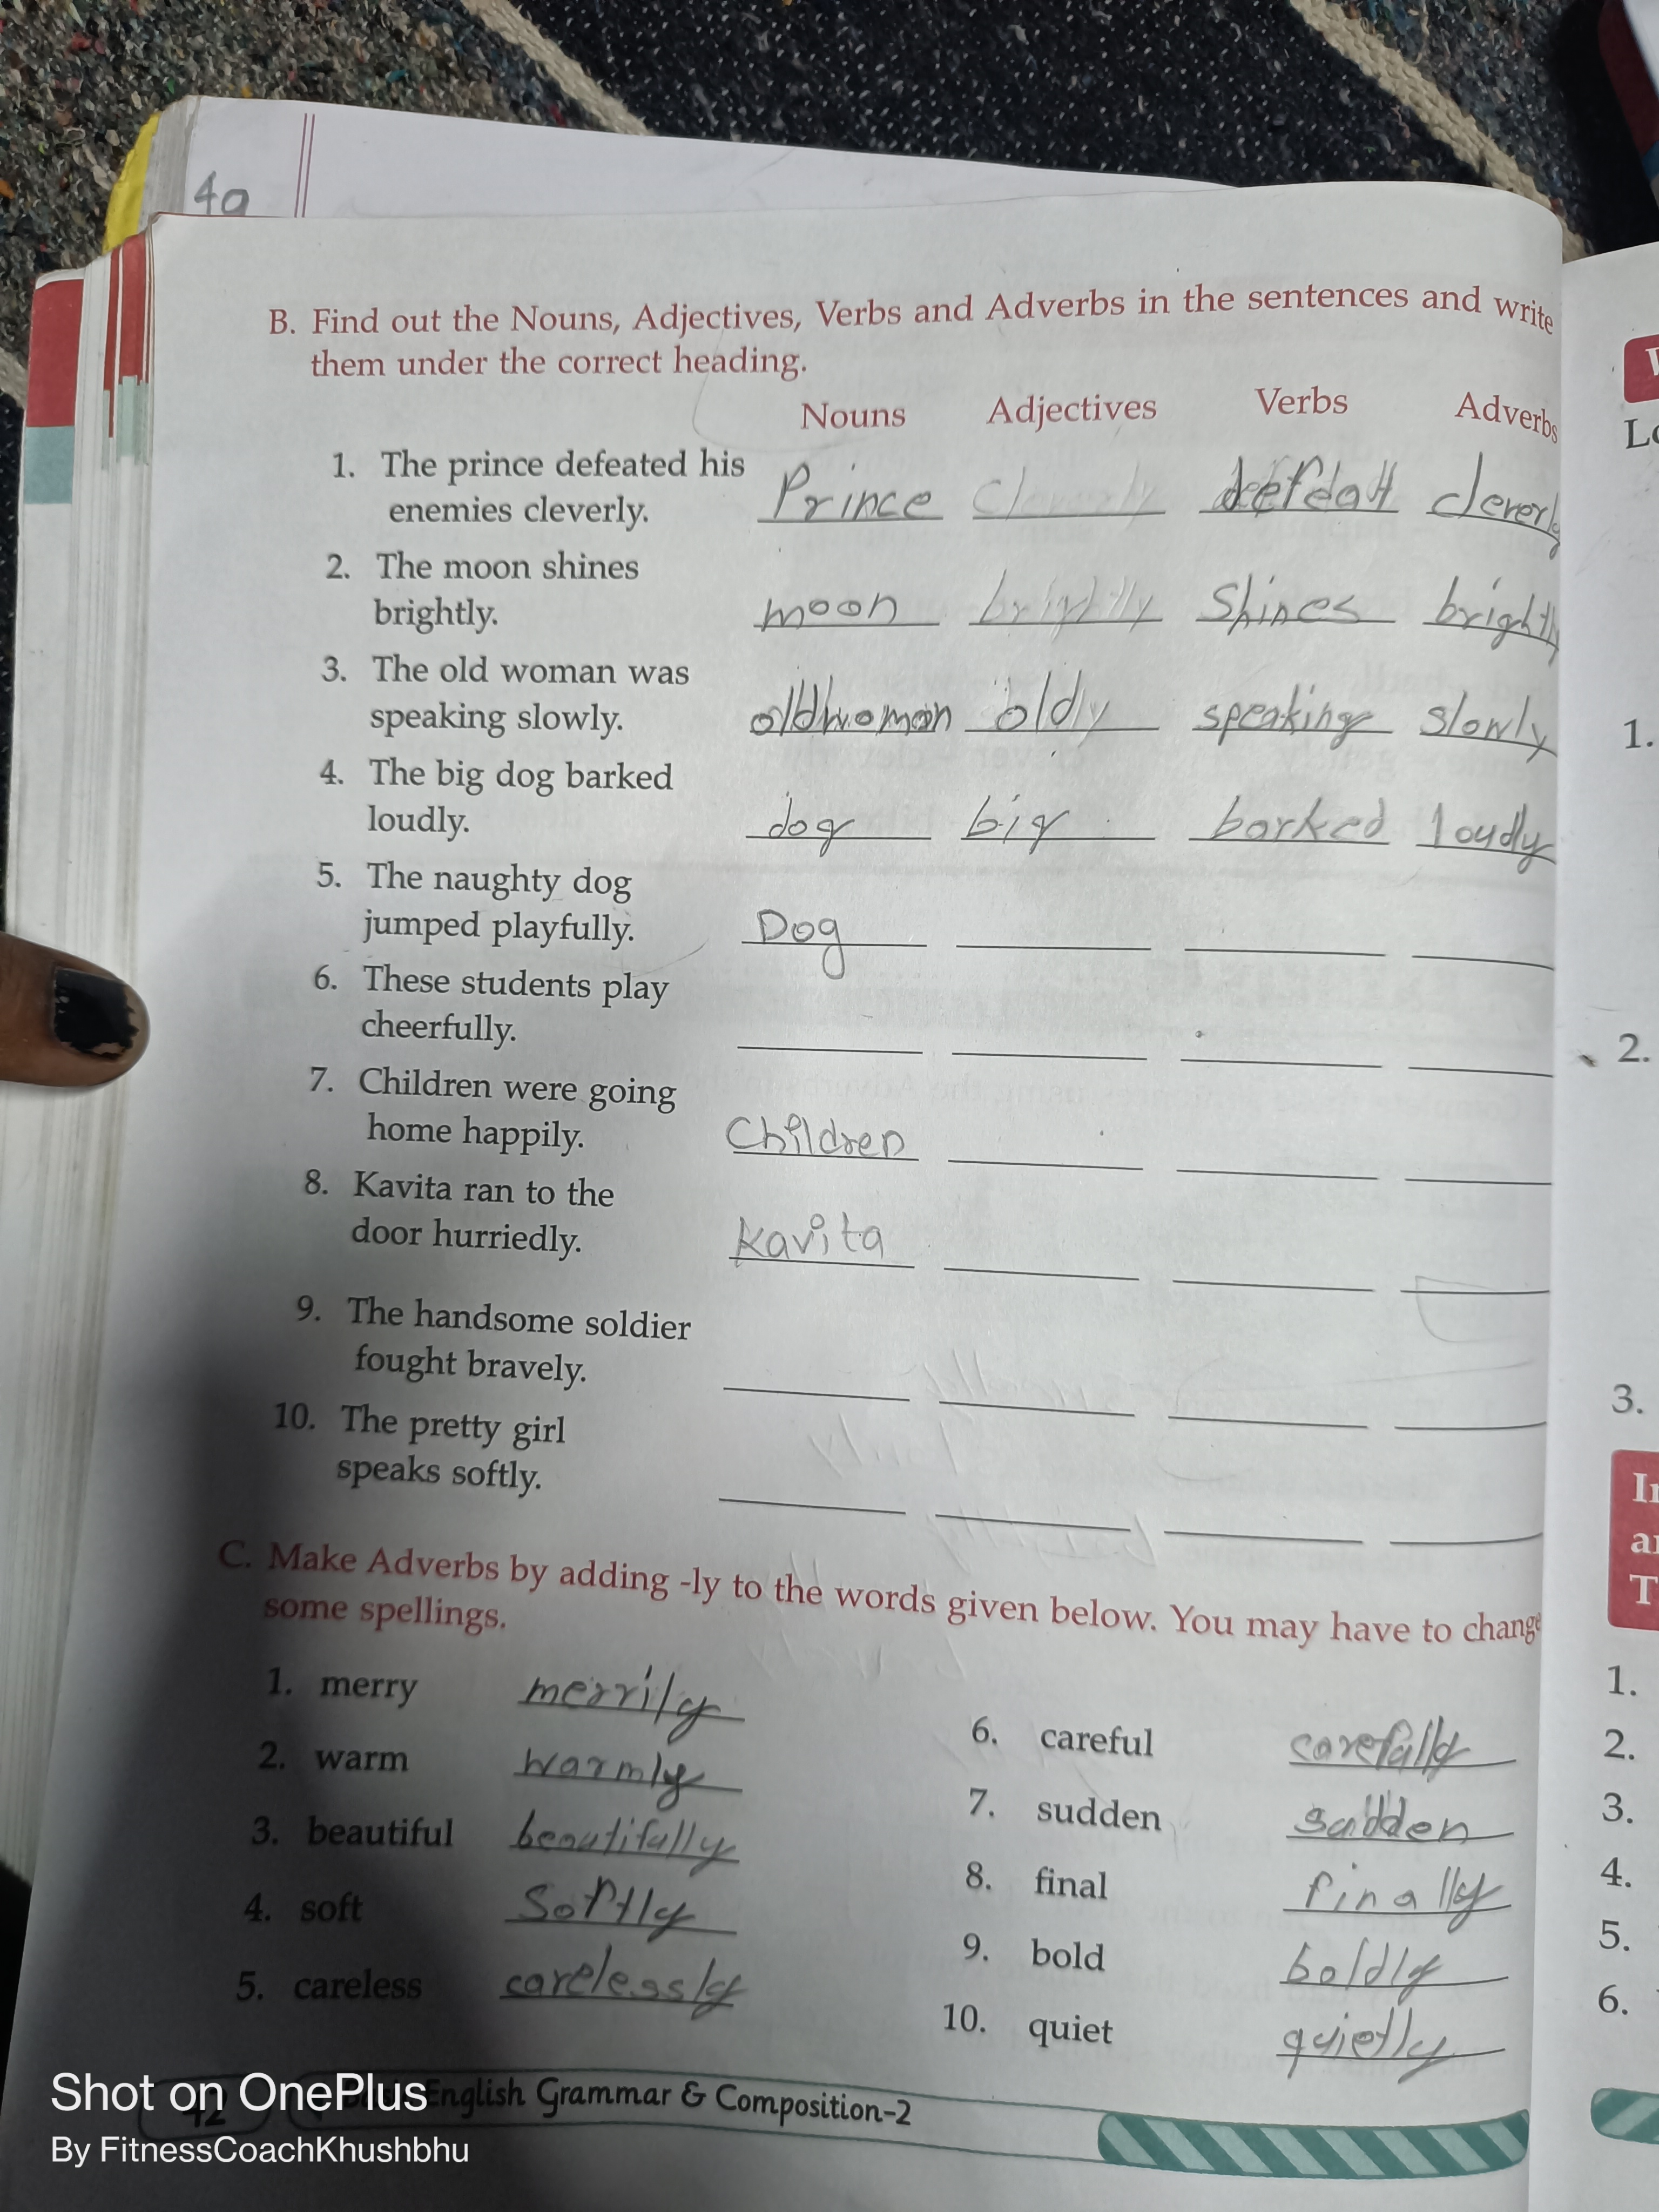 49
B. Find out the Nouns, Adjectives, Verbs and Adverbs in the sentences and write
them under the correct heading.
Nouns Adjectives Verbs Adverbs
1. The prince defeated his
enemies cleverly. Prince cleverly cleverly
2. The moon shines
brightly. moon brightly Shines brightly
3. The old woman was
speaking slowly. oldwoman oldly speaking slowly
4. The big dog barked
loudly. dog big barked loudly
5. The naughty dog
jumped playfully. Dog
6. These students play
cheerfully.
7. Children were going
home happily. Children
8. Kavita ran to the
door hurriedly. Kavita
9. The handsome soldier
fought bravely.
10. The pretty girl
speaks softly.
C. Make Adverbs by adding -ly to the words given below. You may have to change
some spellings.
1. merry merrily
2. warm warmly
3. beautiful beautifully
4. soft Softly
5. careless carelessly
6. careful carefully
7. sudden sudden
8. final finally
9. bold boldly
10. quiet quietly
42 English Grammar & Composition-2
Lo
1.
2.
3.
In
T
1.
2.
3.
4.
5.
6.
Shot on OnePlus
By FitnessCoachKhushbhu